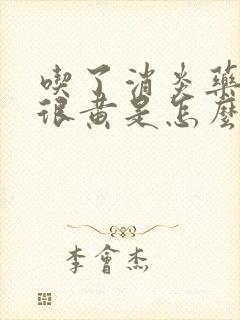 喫了消炎藥
很黃是怎麼
李會杰